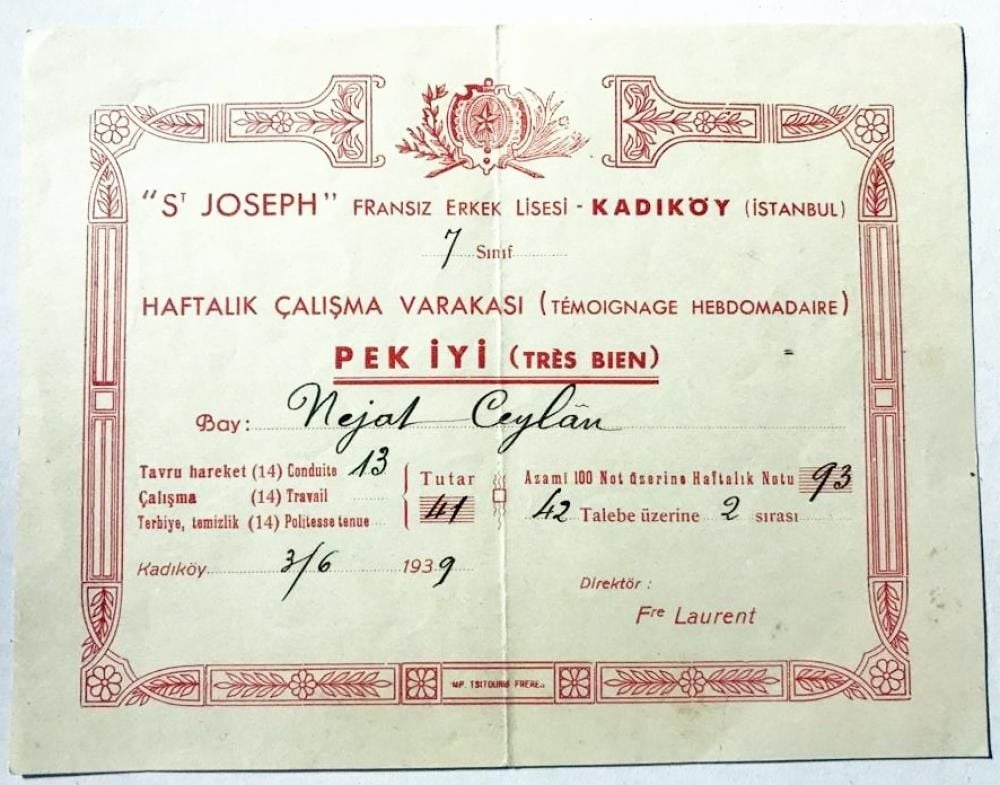 "ST JOSEPH" FRANSIZ ERKEK LİSESİ - KADIKÖY (İSTANBUL)
7 Sınıf
HAFTALIK ÇALIŞMA VARAKASI (TÉMOIGNAGE HEBDOMADAIRE)
PEK İYİ (TRÈS BIEN)
Bay: Nejat Ceylân
Tavru hareket (14) Conduite 13
Çalışma (14) Travail
Terbiye, temizlik (14) Politesse tenue
Tutar
41
Azamî 100 Not üzerine Haftalık Notu 93
42 Talebe üzerine 2 sırası
Kadıköy 3/6 1939
Direktör :
Fre Laurent
IMP. TSITOURIS FRERES